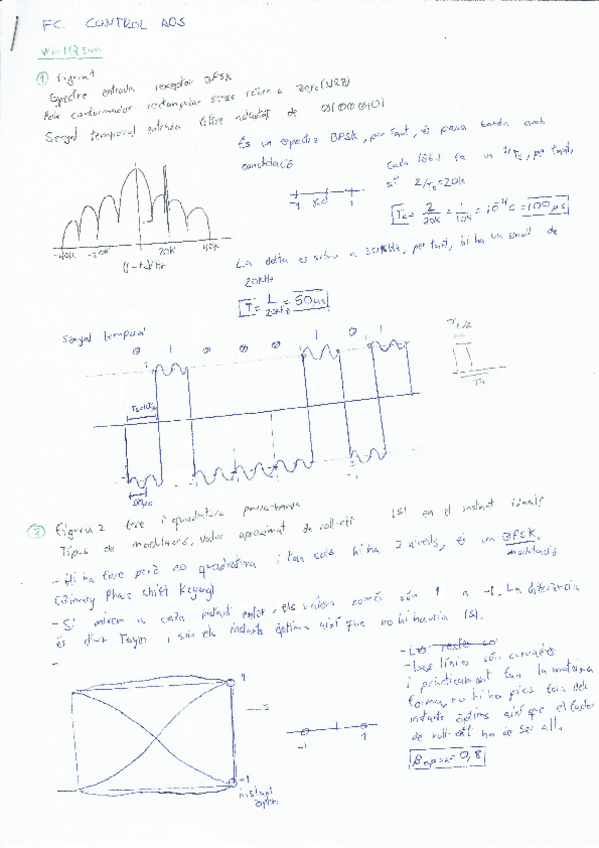 FC. CONTROL AOS
① Figura 1
Espectre entrada receptor BPSK
Pols conformador rectangular sense retorn a zero (NRZ)
Senyal temporal entrada filtre adaptat de 01000101
És un espectre BPSK, per tant, és passa banda amb
constelació
-1 1
Cada lòbul fa un 1/Ts, per tant,
2/Ts=20k
Ts = 2/20k = 1/10k = 10^-4 s = 100 μs
-40k -20k 20k 40k
La delta es situa a 20kHz, per tant, hi ha un senyal de
20kHz
T = 1/20kHz = 50μs
Senyal temporal
0 1 0 0 0 1 0 1
Ts/2
Ts
② Figura 2 fase i quadratura passa-banda
Tipus de modulació, valor aproximat de roll-off ISI en el instant ideal?
- Hi ha fase però no quadratura i tan sols hi ha 2 nivells, és un BPSK.
modulació
(Binary Phase Shift Keying)
- Si mirem a cada instant enter, els valors només són 1 a -1. La diferència
és d'un Tsymb i són els instants òptims així que no hi hauria ISI.
-
1
-1
instant
òptim
-1 1
- Les línies són corvades
i pràcticament fan la mateixa
forma, no hi ha pics fora dels
instants òptims així que el factor
de roll-off ha de ser alt.
= 0,8